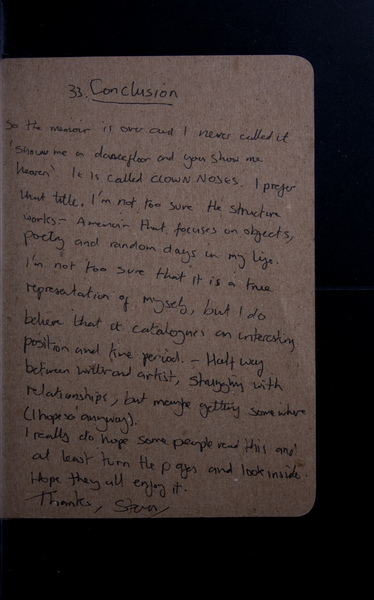 33. Conclusion
So the memoir is over and I never called it
'Show me a dancefloor and you show me
heaven' It is called CLOWN NOSES. I prefer
that title. I'm not too sure the structure
works - A memoir that focuses on objects,
poetry and random days in my life.
I'm not too sure that it is a true
representation of myself, but I do
believe that it catalogues an interesting
position and time period. - Half way
between writer and artist, struggling with
relationships, but maybe getting somewhere
(I hope so anyway).
I really do hope some people read this and
at least turn the pages and look inside.
Hope they all enjoy it.
Thanks,